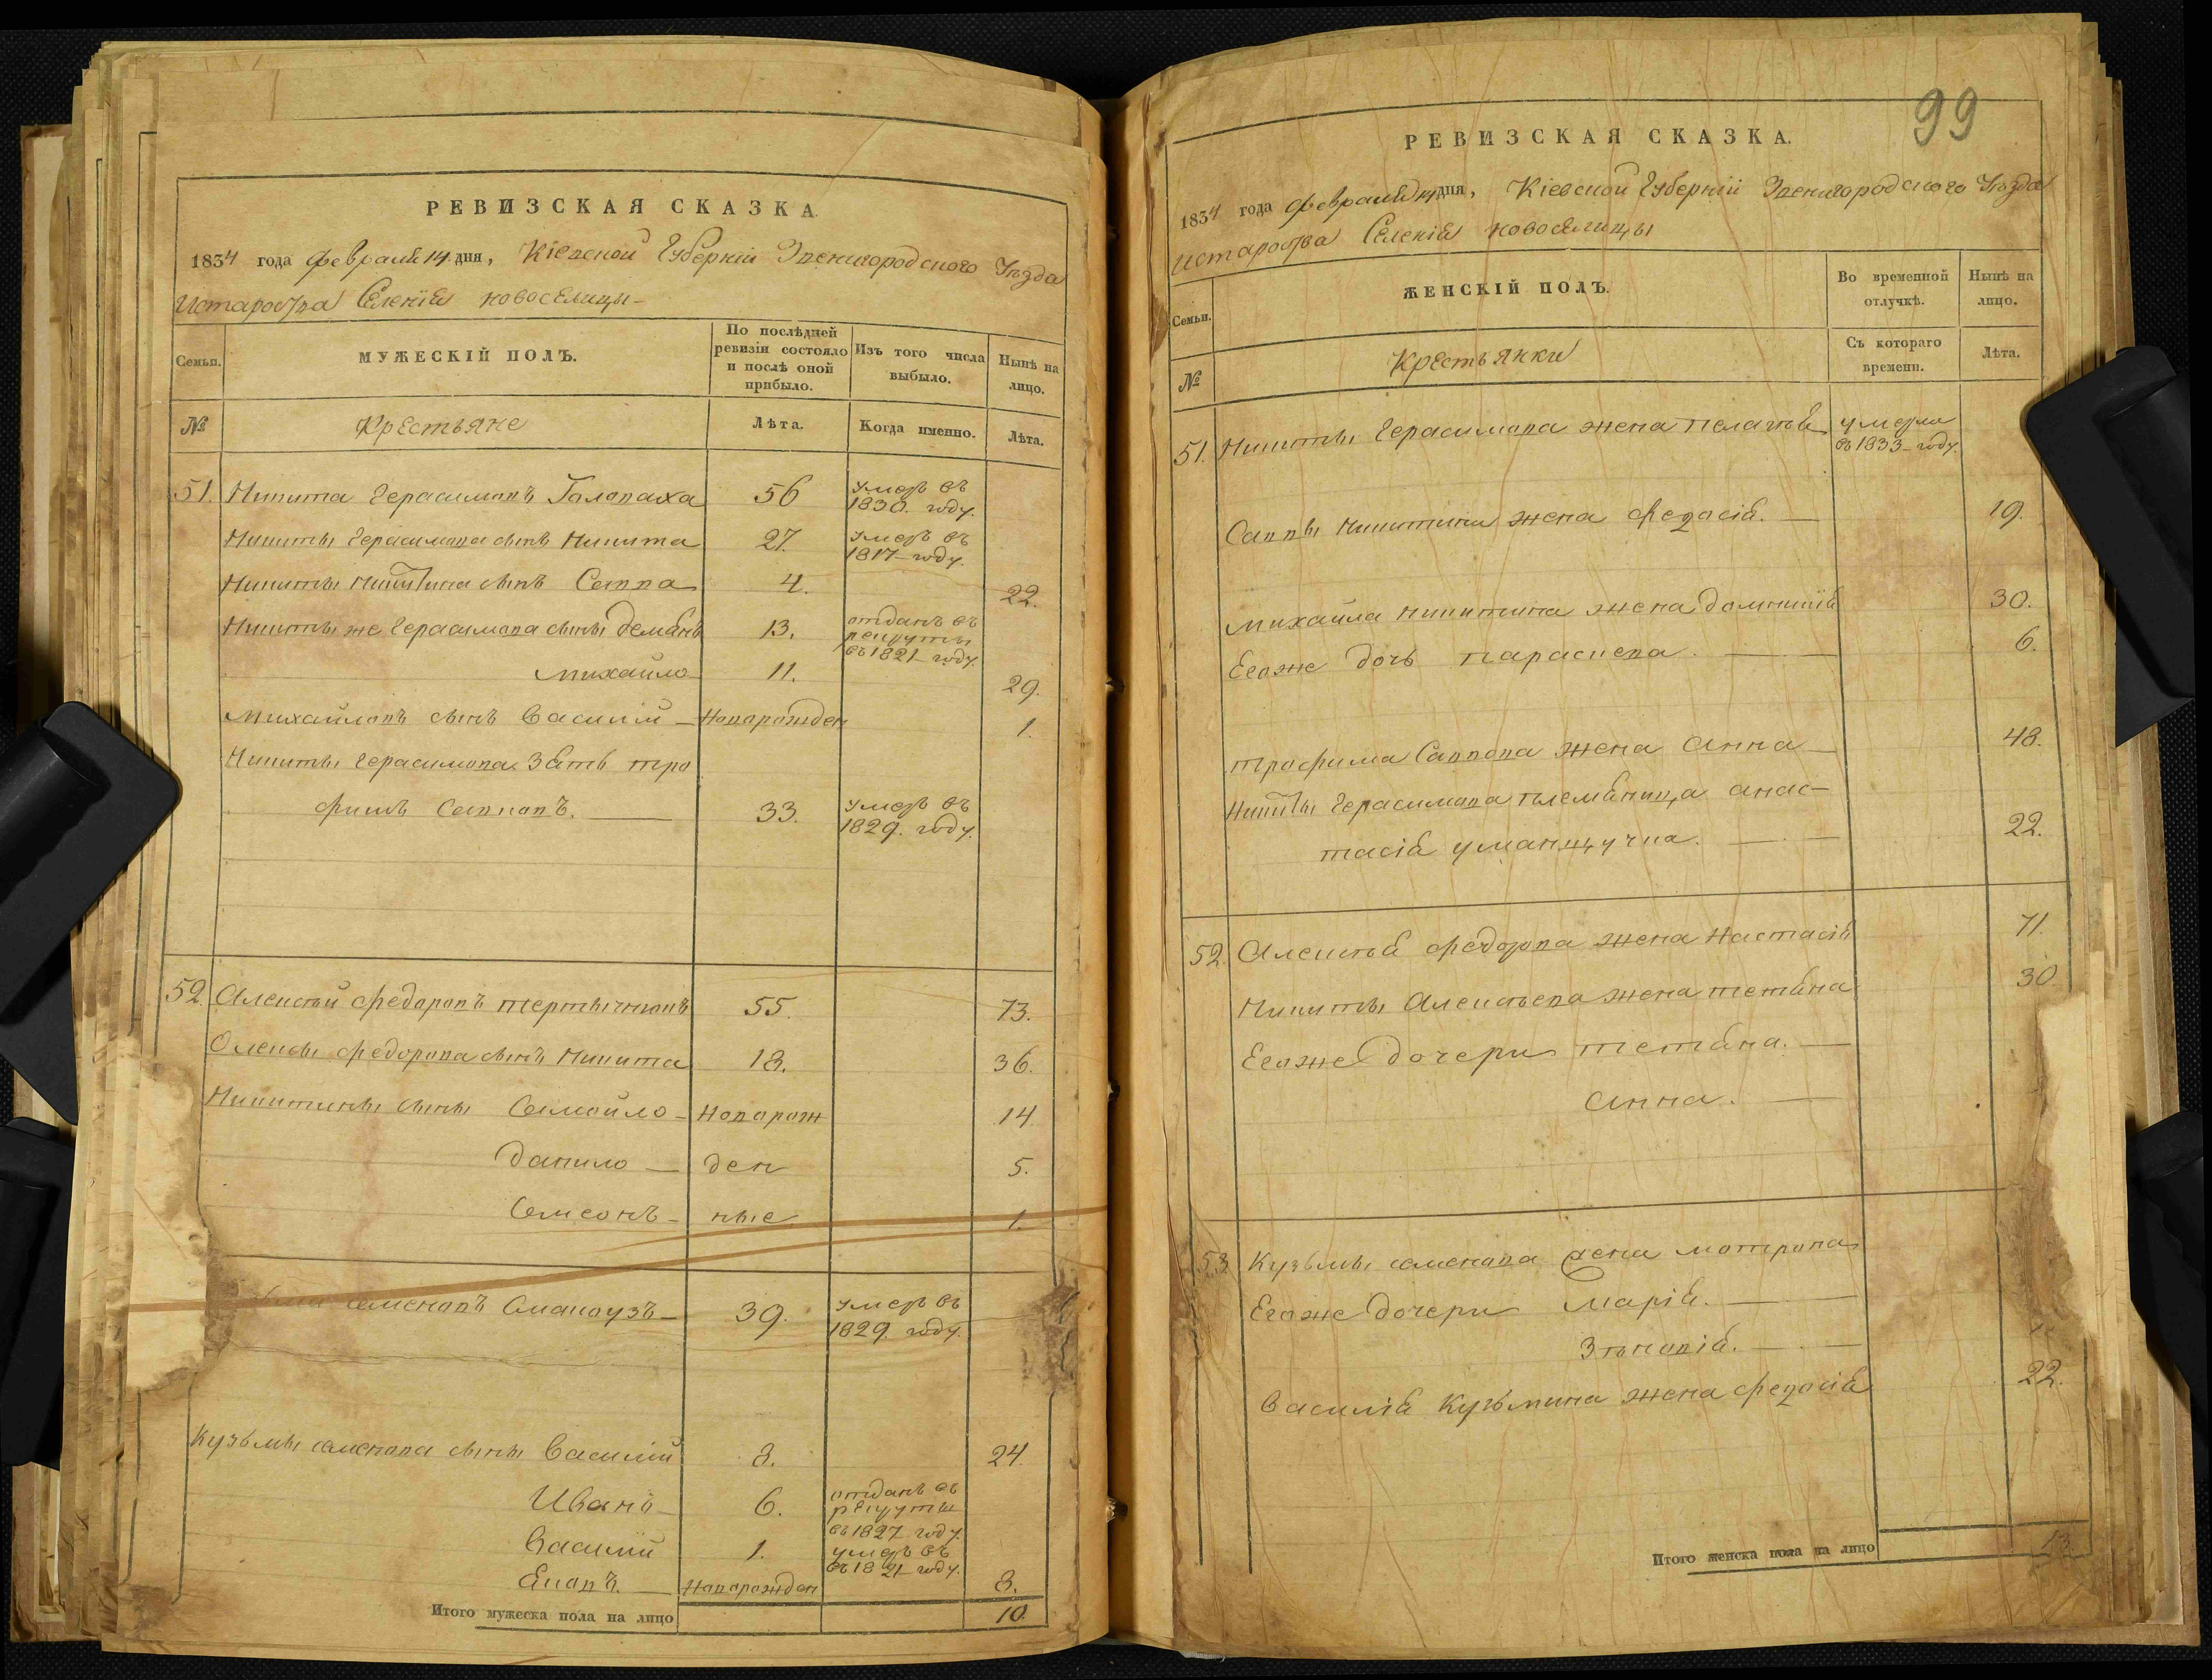 РЕВИЗСКАЯ СКАЗКА.
1834 года февраля 14 дня, Кіевской Губерніи Звенигородского Уѣзда
Староства Селенія новоселицы
Семьи.
МУЖЕСКІЙ ПОЛЪ.
По послѣдней ревизіи состояло и послѣ оной прибыло.
Изъ того числа выбыло.
Нынѣ на лицо.
№
Крестьяне
Лѣта.
Когда именно.
Лѣта.
51. Никита Герасимовъ Головаха 56 умеръ въ 1830. году.
Никиты Герасимова сынъ Никита 27. умеръ въ 1817 году.
Никиты Никитина сынъ Савва 4. 22.
Никиты же Герасимова сыны Демянъ 13. отданъ въ рекруты въ 1821 году.
михайло 11. 29.
михайловъ сынъ Василій Новорожден 1.
Никиты Герасимова зять тро
фимъ Саввовъ. 33. умеръ въ 1829. году.
52. Алексѣй федоровъ 55. 73.
федорова сынъ Никита 18. 36.
Никитины сыны Самойло Новорож 14
данило ден 5.
Семеонъ ные 1.
семеновъ 39. умеръ въ 1829. году.
Кузьмы семенова сыны Василій 8. 24.
Иванъ 6. отданъ въ рекруты въ 1827 году.
Василій 1. умеръ въ въ 1821 году.
Новорожден 8.
Итого мужеска пола на лицо 10.
99
РЕВИЗСКАЯ СКАЗКА.
1834 года февраля 14 дня, Кіевской Губерніи Звенигородского Уѣзда
Староства Селенія новоселицы
Семьи.
ЖЕНСКІЙ ПОЛЪ.
Во временной отлучкѣ.
Нынѣ на лицо.
№
Крестьянки
Съ котораго времени.
Лѣта.
51. Никиты Герасимова жена пелагея умерла въ 1833 году.
Саввы никитина жена феодосія. 19.
михайла никитина жена домникія 30.
Егоже дочь параскева. 6.
трофима Саввова жена анна 48.
Никиты Герасимова племяница анас-
тасія уманщучка. 22.
52. Алексѣя федорова жена Настасія 71.
Никиты Алексѣева жена тетяна 30
Егоже дочери тетяна.
анна.
53 Кузьмы семенова жена мотрона
Егоже дочери марія.
Зѣновія.
Василія Кузьмина жена феодосія 22.
Итого женска пола на лицо 13.